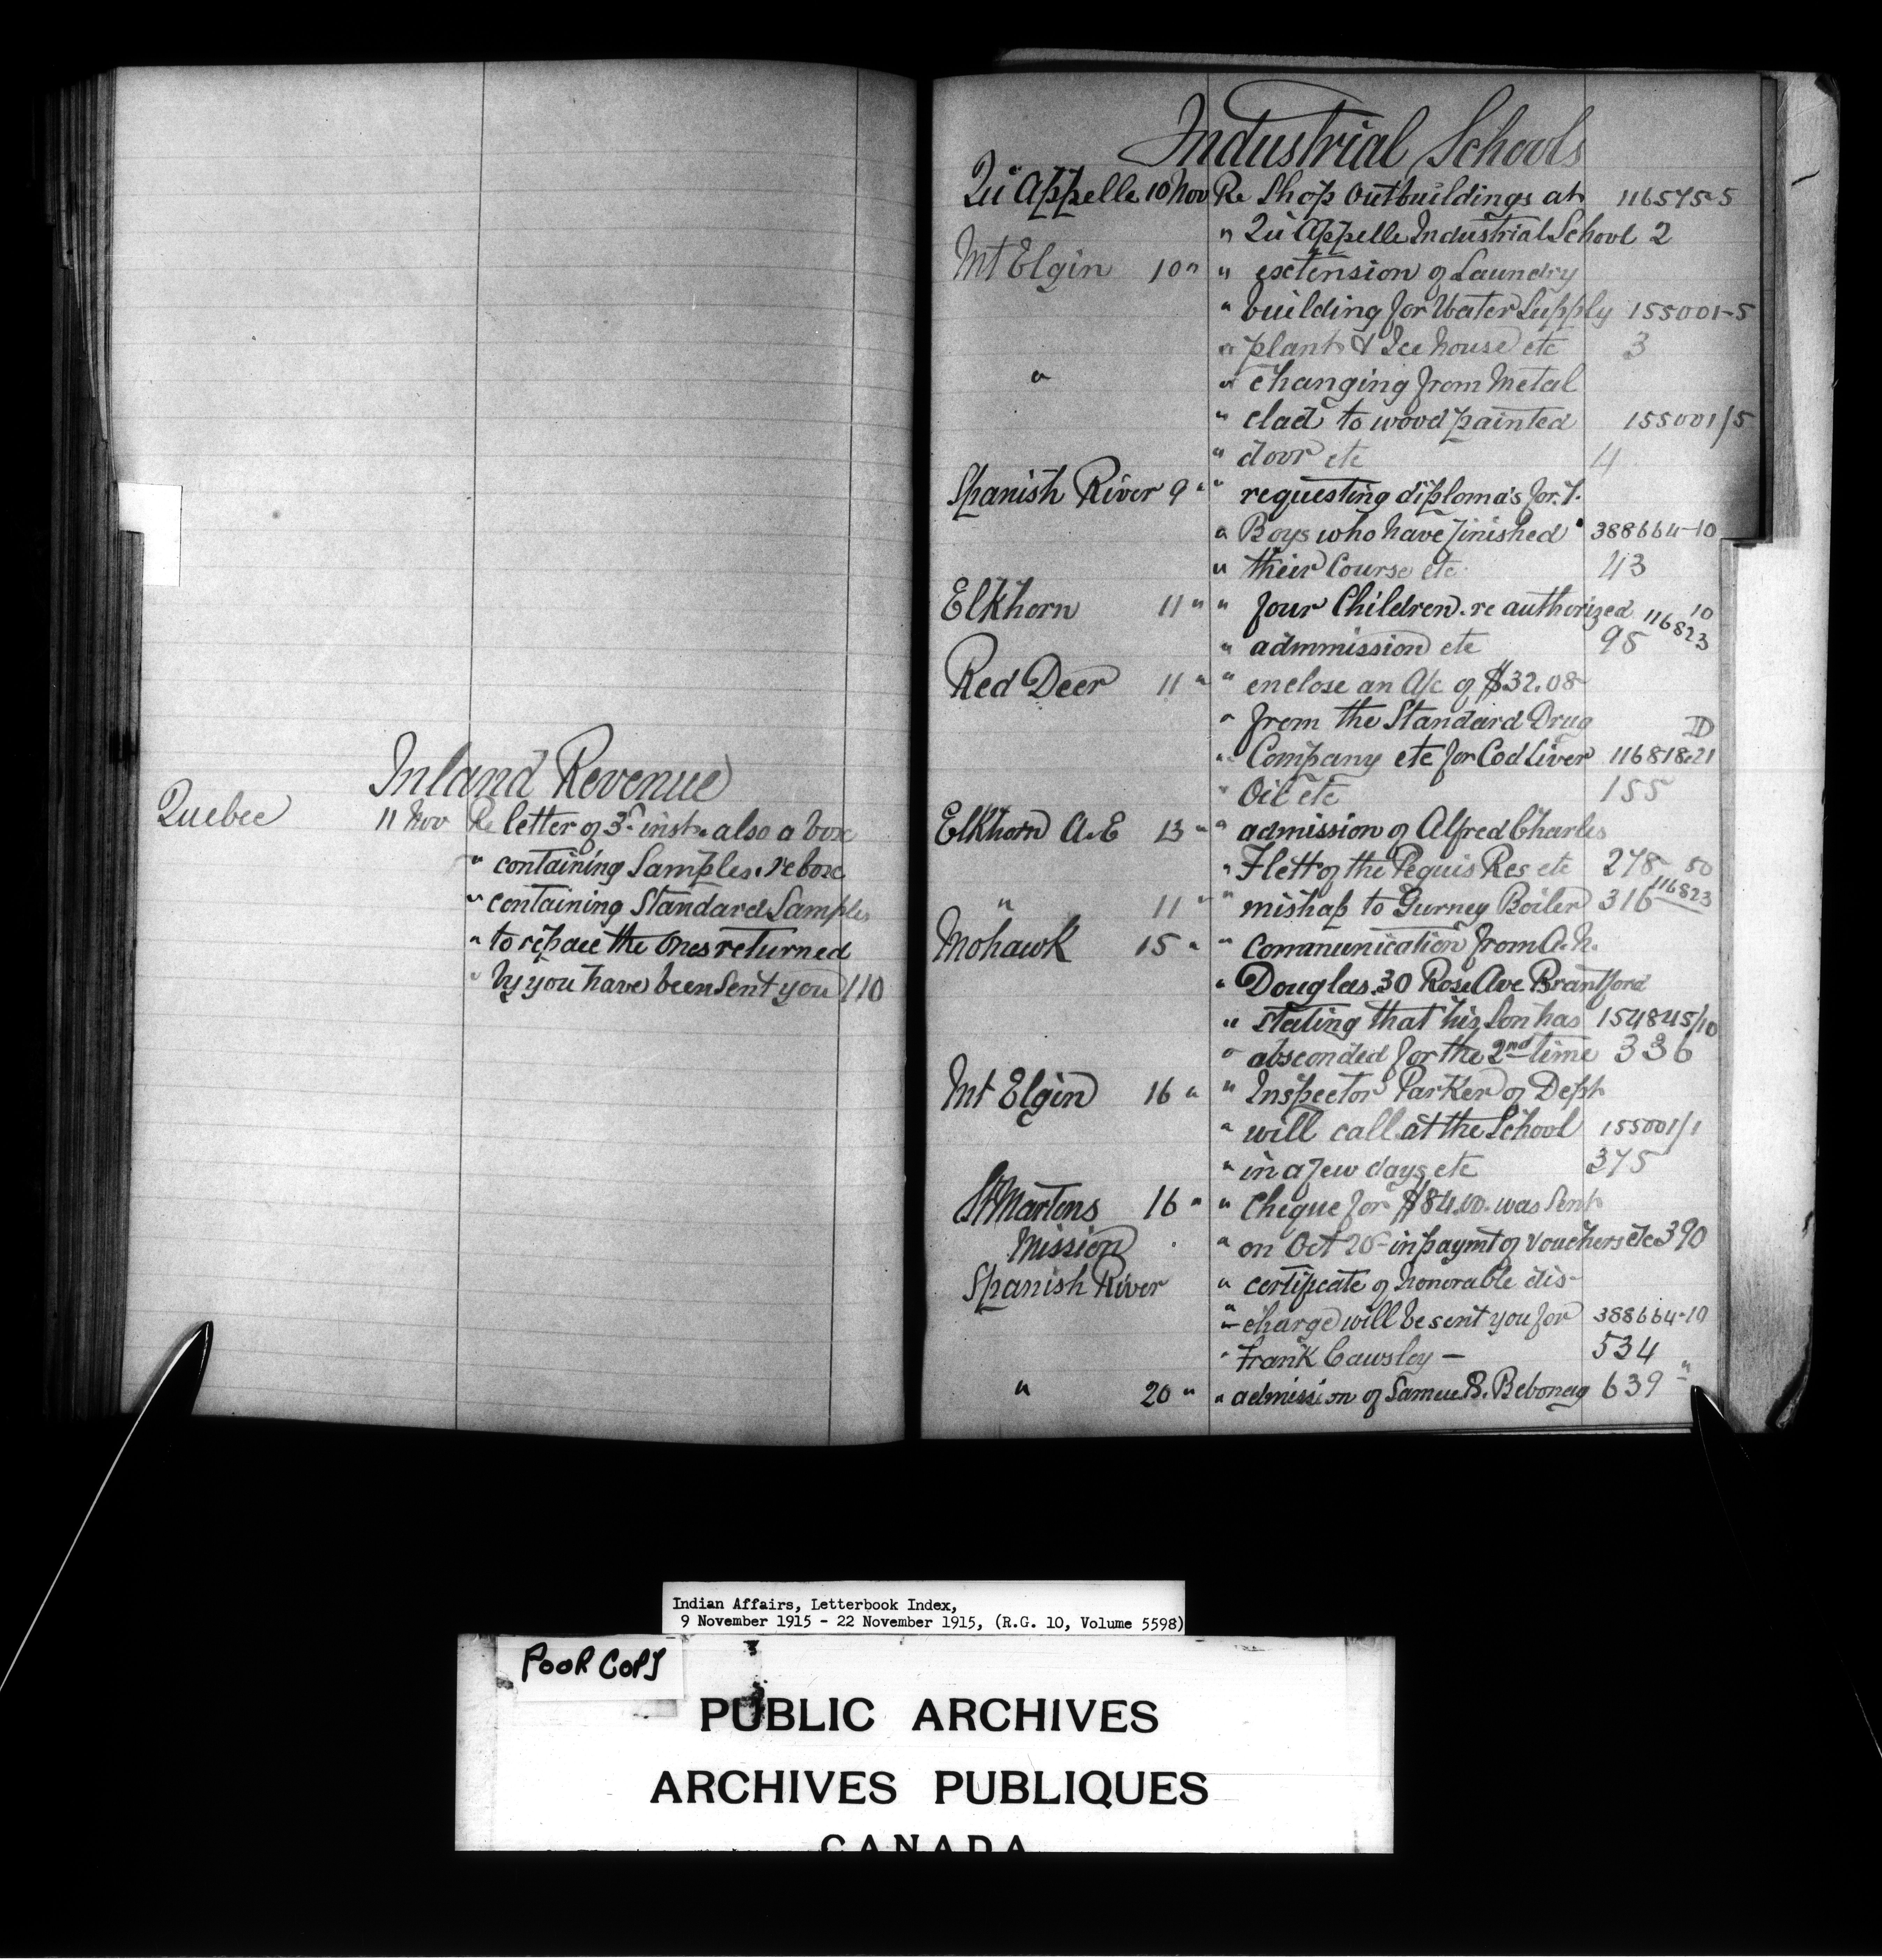 Inland Revenue
Quebec 11 Nov Re letter of 3rd inst. also a box
" containing Samples. re box
" containing Standard Samples
" to repace the ones returned
" by you have been sent you 110
Industrial Schools
Qu'Appelle 10 Nov Re Shop Outbuildings at 116575-5
" Qu'Appelle Industrial School 2
Mt Elgin 10 " " extension of Laundry
" building for Water Supply 155001-5
" plant & Ice house etc 3
" " changing from Metal
" clad to wood painted 155001/5
" door etc 4
Spanish River 9 " " requesting diploma's for
" Boys who have finished 388664-10
" their Course etc 43
Elkhorn 11 " " four Children. re authorized 10
" admmission etc 95 116823
Red Deer 11 " " enclose an A/c of $32.08
" from the Standard Drug D
" Company etc for Cod Liver 116818-21
" Oil etc 155
Elkhorn A.E 13 " " admission of Alfred Charles
" Flett of the Peguis Res etc 278 50
" 11 " " mishap to Gurney Boiler 316 116823
Mohawk 15 " " Communication from A.N.
" Douglas. 30 Rose Ave Brantford
" stating that his Son has 154845/10
" absconded for the 2nd time 336
Mt Elgin 16 " " Inspector Parker of Dept
" will call at the School 155001/1
" in a few days etc 375
St Martens 16 " " Cheque for $84.00. was sent
Mission " on Oct 26 in paymt of Vouchers etc 390
Spanish River " certificate of honorable dis-
" charge will be sent you for 388664-10
" Frank Cawsley - 534
" 20 " " admission of Samuel B. Bebonag 639 "
Indian Affairs, Letterbook Index,
9 November 1915 - 22 November 1915, (R.G. 10, Volume 5598)
POOR COPY
PUBLIC ARCHIVES
ARCHIVES PUBLIQUES
CANADA